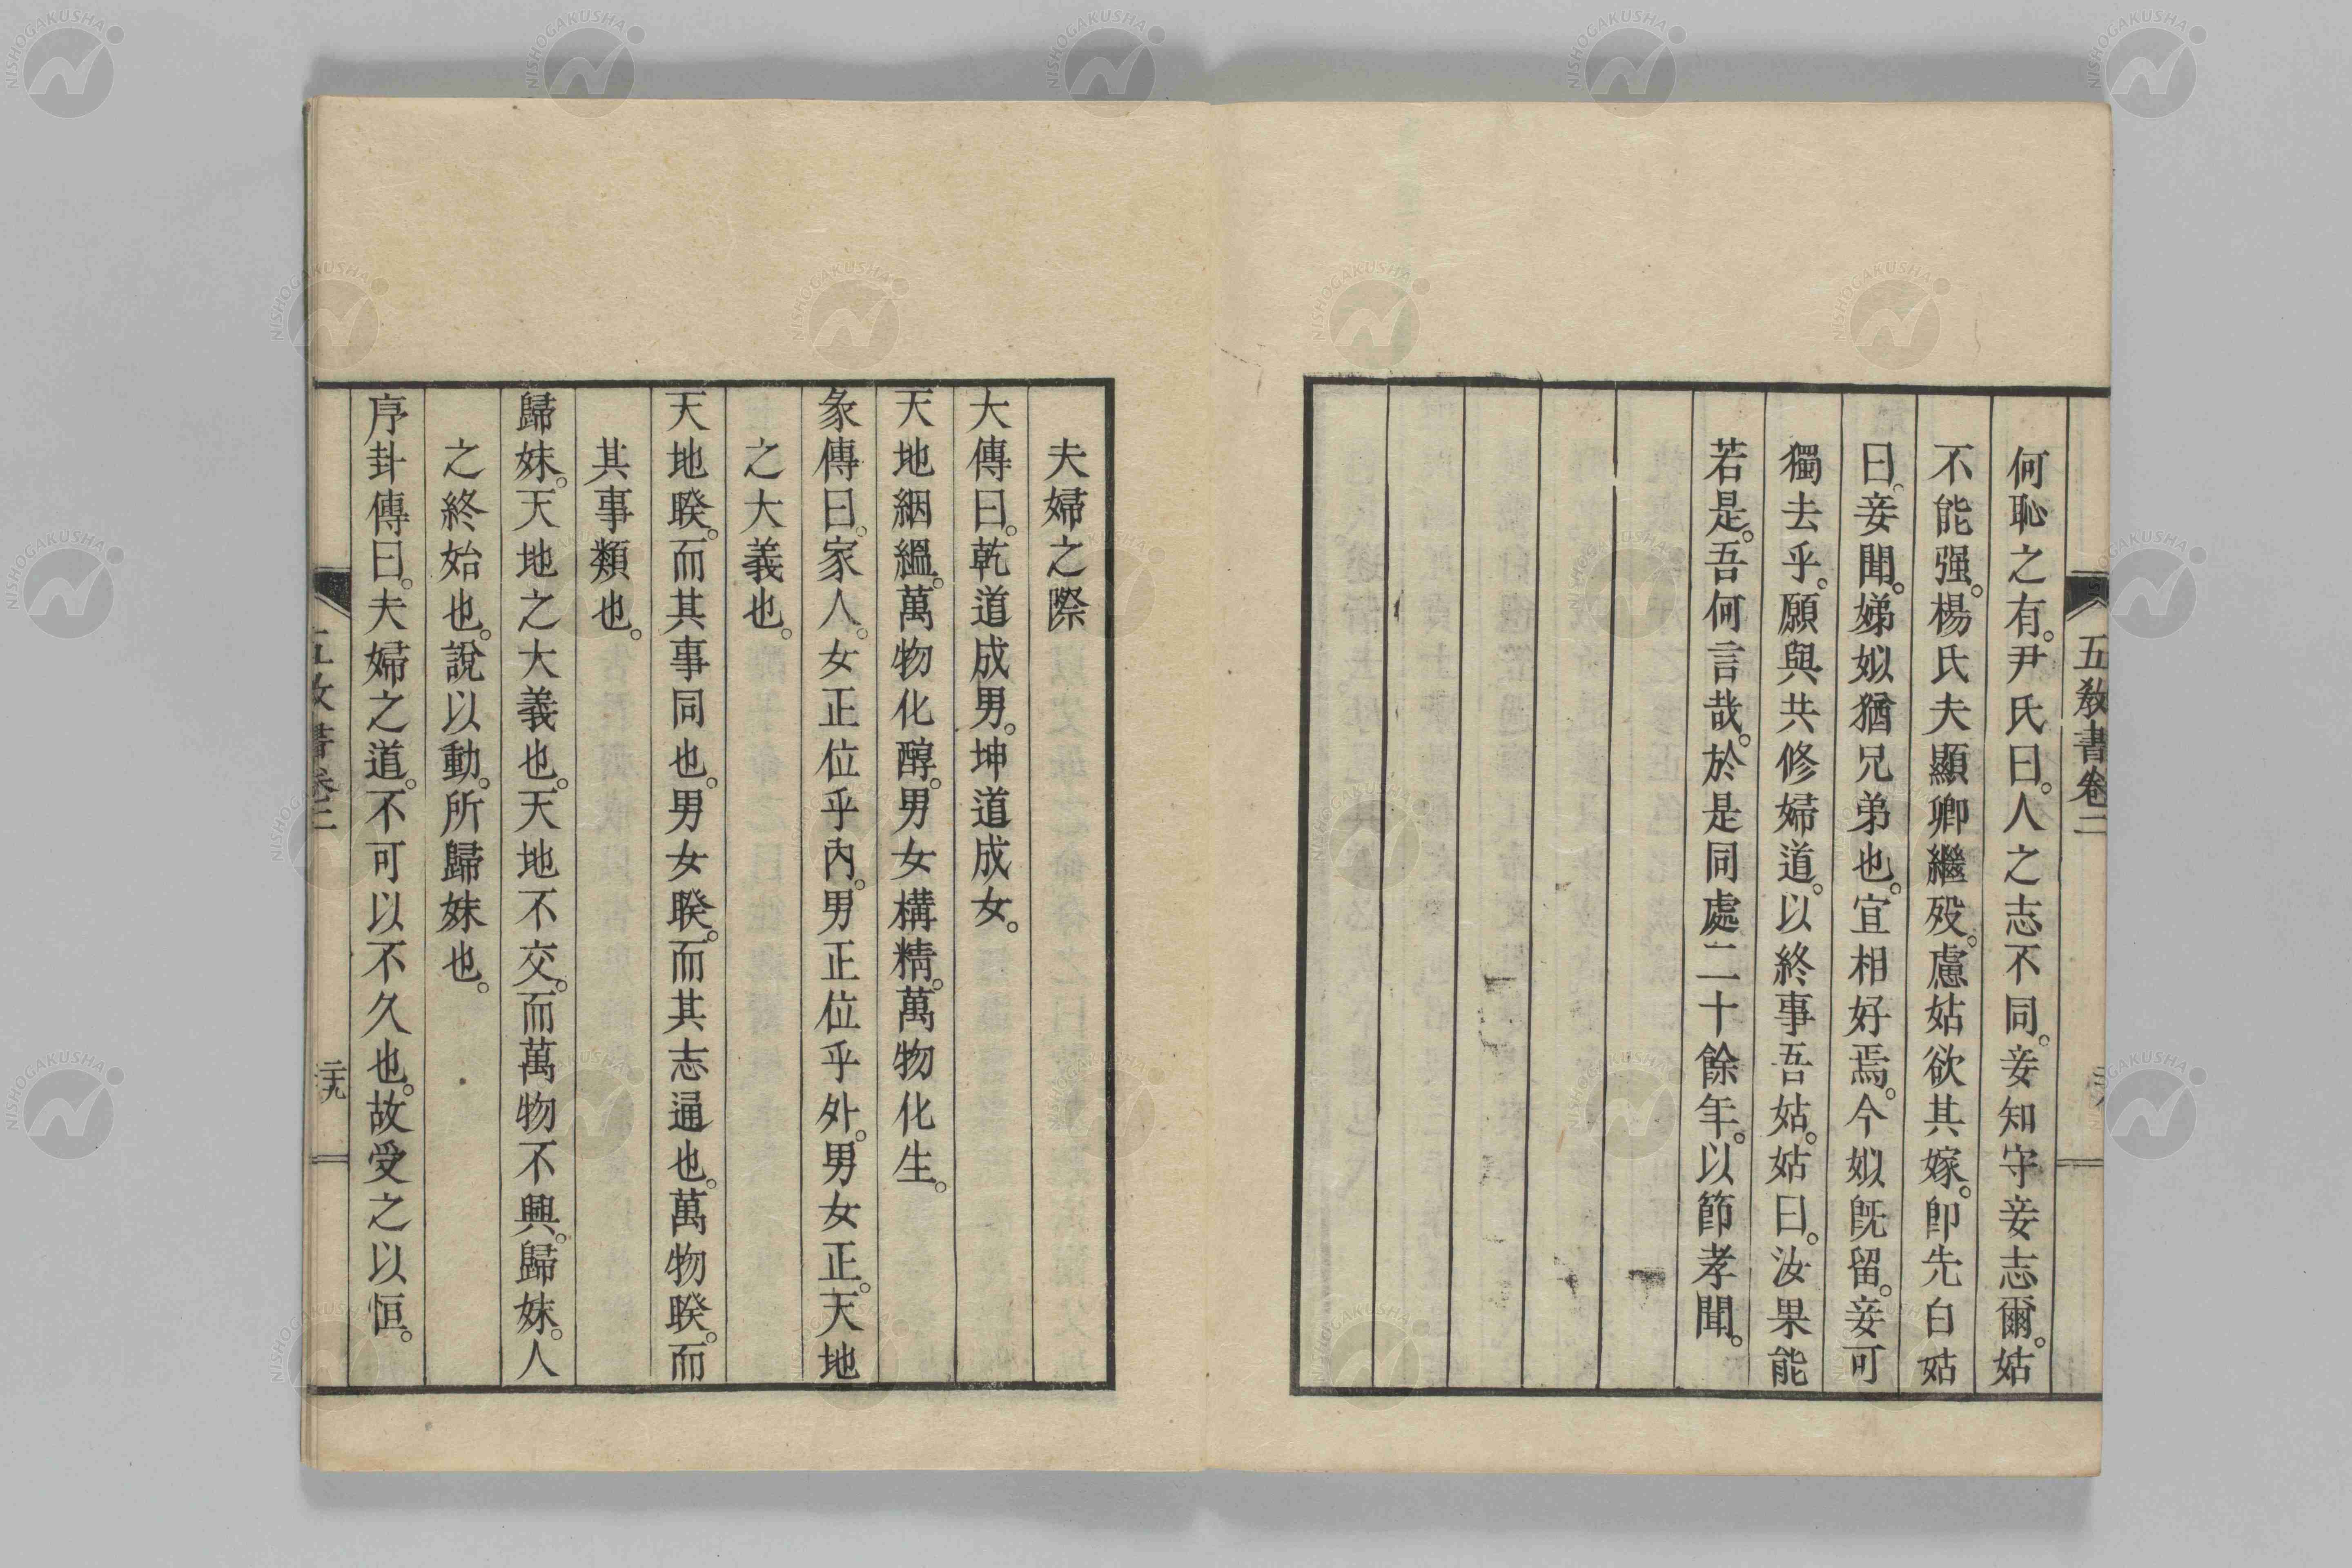 五敎書卷二
何恥之有。尹氏曰。人之志不同。妾知守妾志爾。姑
不能强。楊氏夫顯卿繼歿。慮姑欲其嫁。卽先白姑
曰。妾聞。娣姒猶兄弟也。宜相好焉。今姒旣留。妾可
獨去乎。願與共修婦道。以終事吾姑。姑曰。汝果能
若是。吾何言哉。於是同處二十餘年。以節孝聞。
夫婦之際
大傳曰。乾道成男。坤道成女。
天地絪縕。萬物化醇。男女構精。萬物化生。
彖傳曰。家人。女正位乎內。男正位乎外。男女正。天地
之大義也。
天地睽。而其事同也。男女睽。而其志通也。萬物睽。而
其事類也。
歸妹。天地之大義也。天地不交。而萬物不興。歸妹。人
之終始也。說以動。所歸妹也。
序卦傳曰。夫婦之道。不可以不久也。故受之以恒。
五敎書卷二
二十九
NISHOGAKUSHA